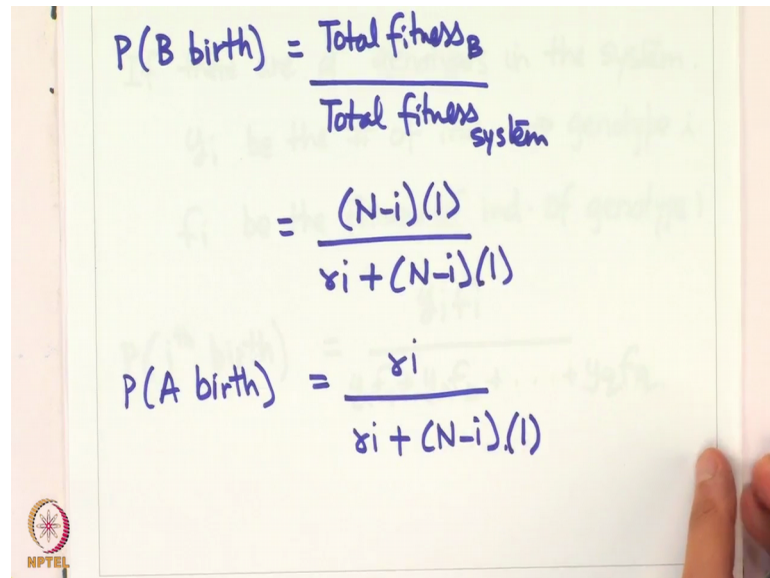 P(B birth) = Total fitness_B / Total fitness_system
= (N-i)(1) / ri + (N-i)(1)
P(A birth) = ri / ri + (N-i).(1)
NPTEL